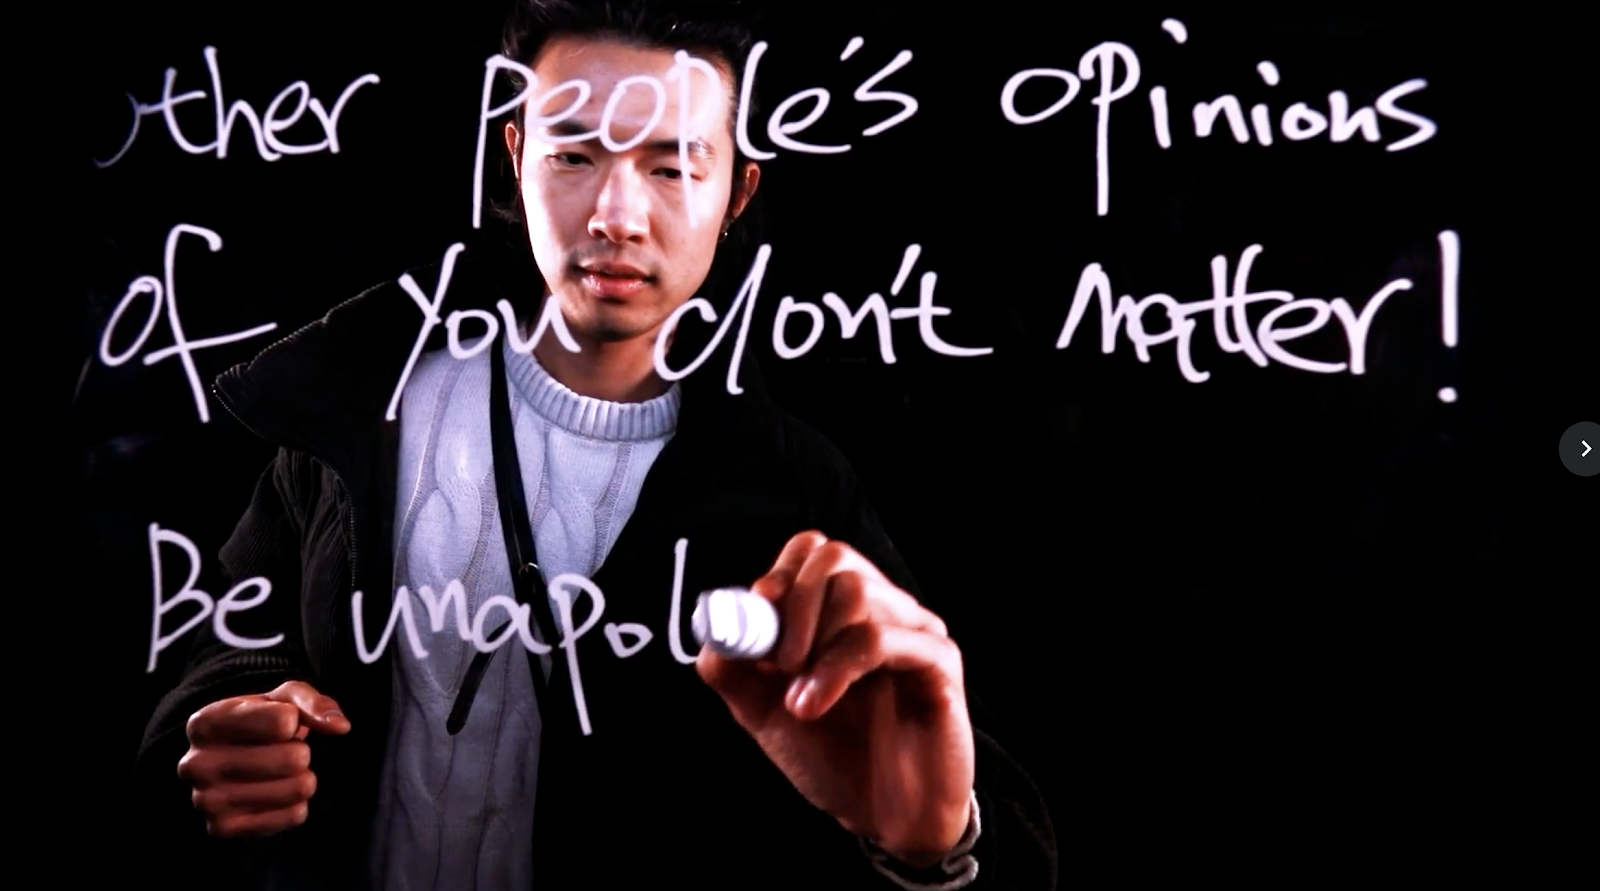 other people's opinions
of you don't matter!
Be unapol